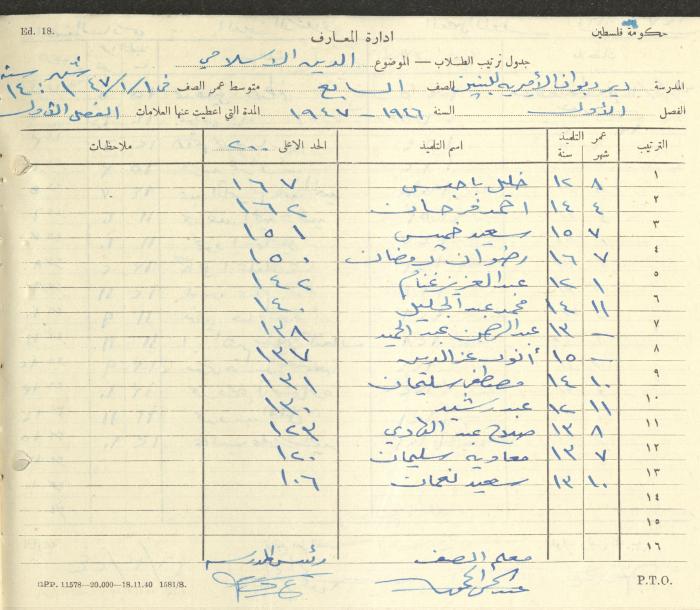 Ed. 18.
حكومة فلسطين
ادارة المعارف
جدول ترتيب الطلاب — الموضوع الدين الاسلامي
المدرسة دير ديوان الأميرية للبنين الصف السابع متوسط عمر الصف في ١/١/٤٧ شهر سنة ١ : ١٤
الفصل الأول السنة ١٩٤٦ - ١٩٤٧ المدة التي اعطيت عنها العلامات الفصل الأول
الترتيب عمر التلميذ شهر سنة اسم التلميذ الحد الاعلى ٢٠٠ ملاحظات
١ ٨ ١٢ خليل باجس ١٦٧
٢ ٤ ١٤ احمد فرحان ١٦٢
٣ ٧ ١٥ سعيد خميس ١٥١
٤ ٧ ١٦ رضوان رمضان ١٥٠
٥ ١ ١٢ عبد العزيز غنام ١٤٢
٦ ١١ ١٤ محمد عبد الجليل ١٤٠
٧ — ١٣ عبد الرحمن عبد الحميد ١٣٨
٨ — ١٥ أنور عز الدين ١٣٧
٩ ١٠ ١٤ مصطفى سليمان ١٣١
١٠ ١١ ١٢ عبد رشيد ١٣٠
١١ ٨ ١٣ صلاح عبد الهادي ١٢٣
١٢ ٧ ١٣ معاوية سليمان ١٢٠
١٣ ١٠ ١٣ سعيد نعمان ١٠٦
١٤
١٥
١٦
معلم الصف رئيس المدرسة
GPP. 11578—20,000—18.11.40 1581/S.
P.T.O.